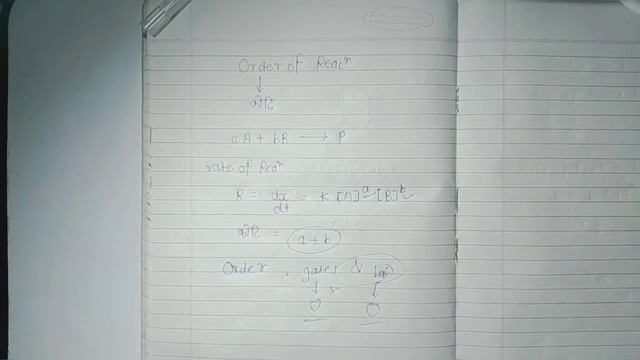 Order of Reacⁿ
↓
कोटि
aA + bB ⟶ P
rate of Reaⁿ
R = dx/dt = K [A]ᵃ [B]ᵇ
कोटि = a + b
Order , &
↓ ↓
0 0